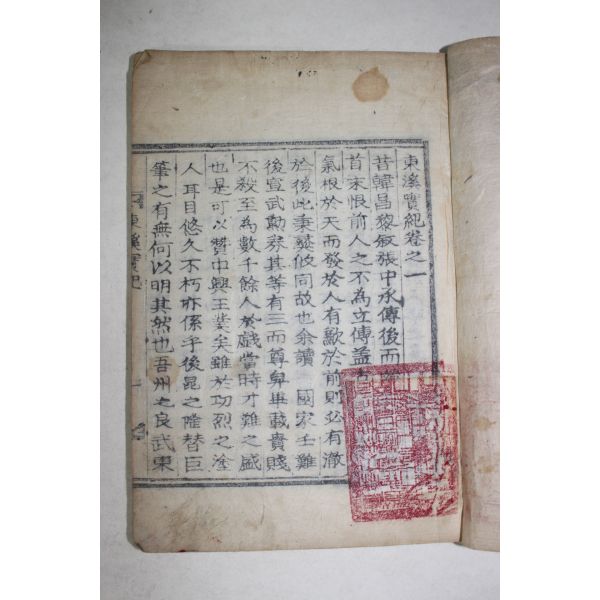 東溪實紀卷之一
昔韓昌黎叙張中丞傳後而
首末恨前人之不為立傳盖
氣根於天而發於人有歉於前則必有激
於後此秉彛攸同故也余讀 國家壬難
後宣武勳券其等有三而尊卑畢載貴賤
不殺至為數千餘人於戱當時才難之盛
也是可以贊中興王業矣雖於功烈之塗
人耳目悠久不朽亦係乎後昆之隆替巨
筆之有無何以明其然也吾州之良武東
東溪實紀